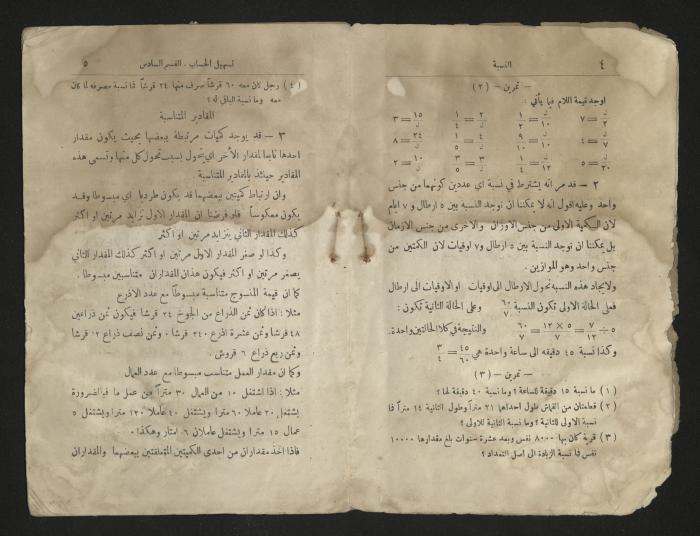 ٤
النسبة
— تمرين — (٢)
اوجد قيمة اللام فيما يأتي :
ل/٢ = ٧    ل/١٠ = ١/٢    ٢/ل = ١/٤    ١٥/ل = ٣
ل/٧ = ٤    ل/١٠ = ٩/١٠    ل/٥ = ٤    ٢٤/ل = ٨
ل/٢٠ = ٥    ل/١٢ = ١/٤    ٣/ل = ٣/٥    ١٠/ل = ٢
٢ — قد مر انه يشترط في نسبة اي عددين كونهما من جنس
واحد وعليه اقول انه لا يمكننا ان نوجد النسبة بين ٥ ارطال و ٧ ايام
لان الكمية الاولى من جنس الاوزان والاخرى من جنس الازمان
بل يمكننا ان نوجد النسبة بين ٥ ارطال و٧ اوقيات لان الكمتين من
جنس واحد وهو الموازين .
ولايجاد هذه النسبة نحول الارطال الى اوقيات او الاوقيات الى ارطال
فعلى الحالة الاولى تكون النسبة ٦٠/٧ وعلى الحالة الثانية تكون :
٥ ÷ ٧/١٢ = ٥ × ١٢/٧ = ٦٠/٧ والنتيجة في كلا الحالتين واحدة .
وكذا نسبة ٤٥ دقيقه الى ساعة واحدة هي ٤٥/٦٠ = ٣/٤
— تمرين — (٣)
(١) ما نسبة ١٥ دقيقة للساعة ؟ وما نسبة ٤٠ دقيقة لها ؟
(٢) قطعتان من القماش طول احداهما ٢١ متراً وطول الثانية ١٤ متراً فا
نسبة الاولى للثانية ؟ وما نسبة الثانية للاولى ؟
(٣) قرية كان بها ٨٠٠٠ نفس وبعد عشرة سنوات بلغ مقدارها ١٠٠٠٠
نفس فا نسبة الزيادة الى اصل التعداد ؟
تسهيل الحساب . القسم السادس
٥
(٤) رجل كان معه ٦٠ قرشاً صرف منها ٢٤ قرشاً فا نسبة مصرفه لما كان
معه وما نسبة الباقي له ؟
المقادير المتناسبة
٣ — قد يوجد كميات مرتبطة ببعضها بحيث يكون مقدار
احدها تابعا لمقدار الآخر اي يتحول بسبب تحول كل منها وتسمى هذه
المقادير حينئذ بالمقادير المتناسبة
وان ارتباط كميتين ببعضهما قد يكون طرديا اي مبسوطا وقد
يكون معكوساً فلو فرضنا ان المقدار الاول تزايد مرتين او اكثر
كذلك المقدار الثاني يتزايد مرتين او اكثر
وكذا لو صغر المقدار الاول مرتين او اكثر كذلك المقدار الثاني
يصغر مرتين او اكثر فيكون هذان المقداران متناسبين مبسوطا .
كما ان قيمة المنسوج متناسبة مبسوطا مع عدد الاذرع
مثلا : اذا كان ثمن الذراع من الجوخ ٢٤ قرشا فيكون ثمن ذراعين
٤٨ قرشا وثمن عشرة اذرع ٢٤٠ قرشا . وثمن نصف ذراع ١٢ قرشا
وثمن ربع ذراع ٦ قروش .
وكما ان مقدار العمل متناسب مبسوطا مع عدد العمال
مثلا : اذا اشتغل ١٠ من العمال ٣٠ متراً من عمل ما فبالضرورة
يشتغل ٢٠ عاملا ٦٠ مترا ويشتغل ٤٠ عاملا ١٢٠ مترا ويشتغل ٥
عمال ١٥ مترا ويشتغل عاملان ٦ امتار وهكذا .
فاذا اخذ مقداران من احدى الكميتين المتعلقتين ببعضهما والمقداران